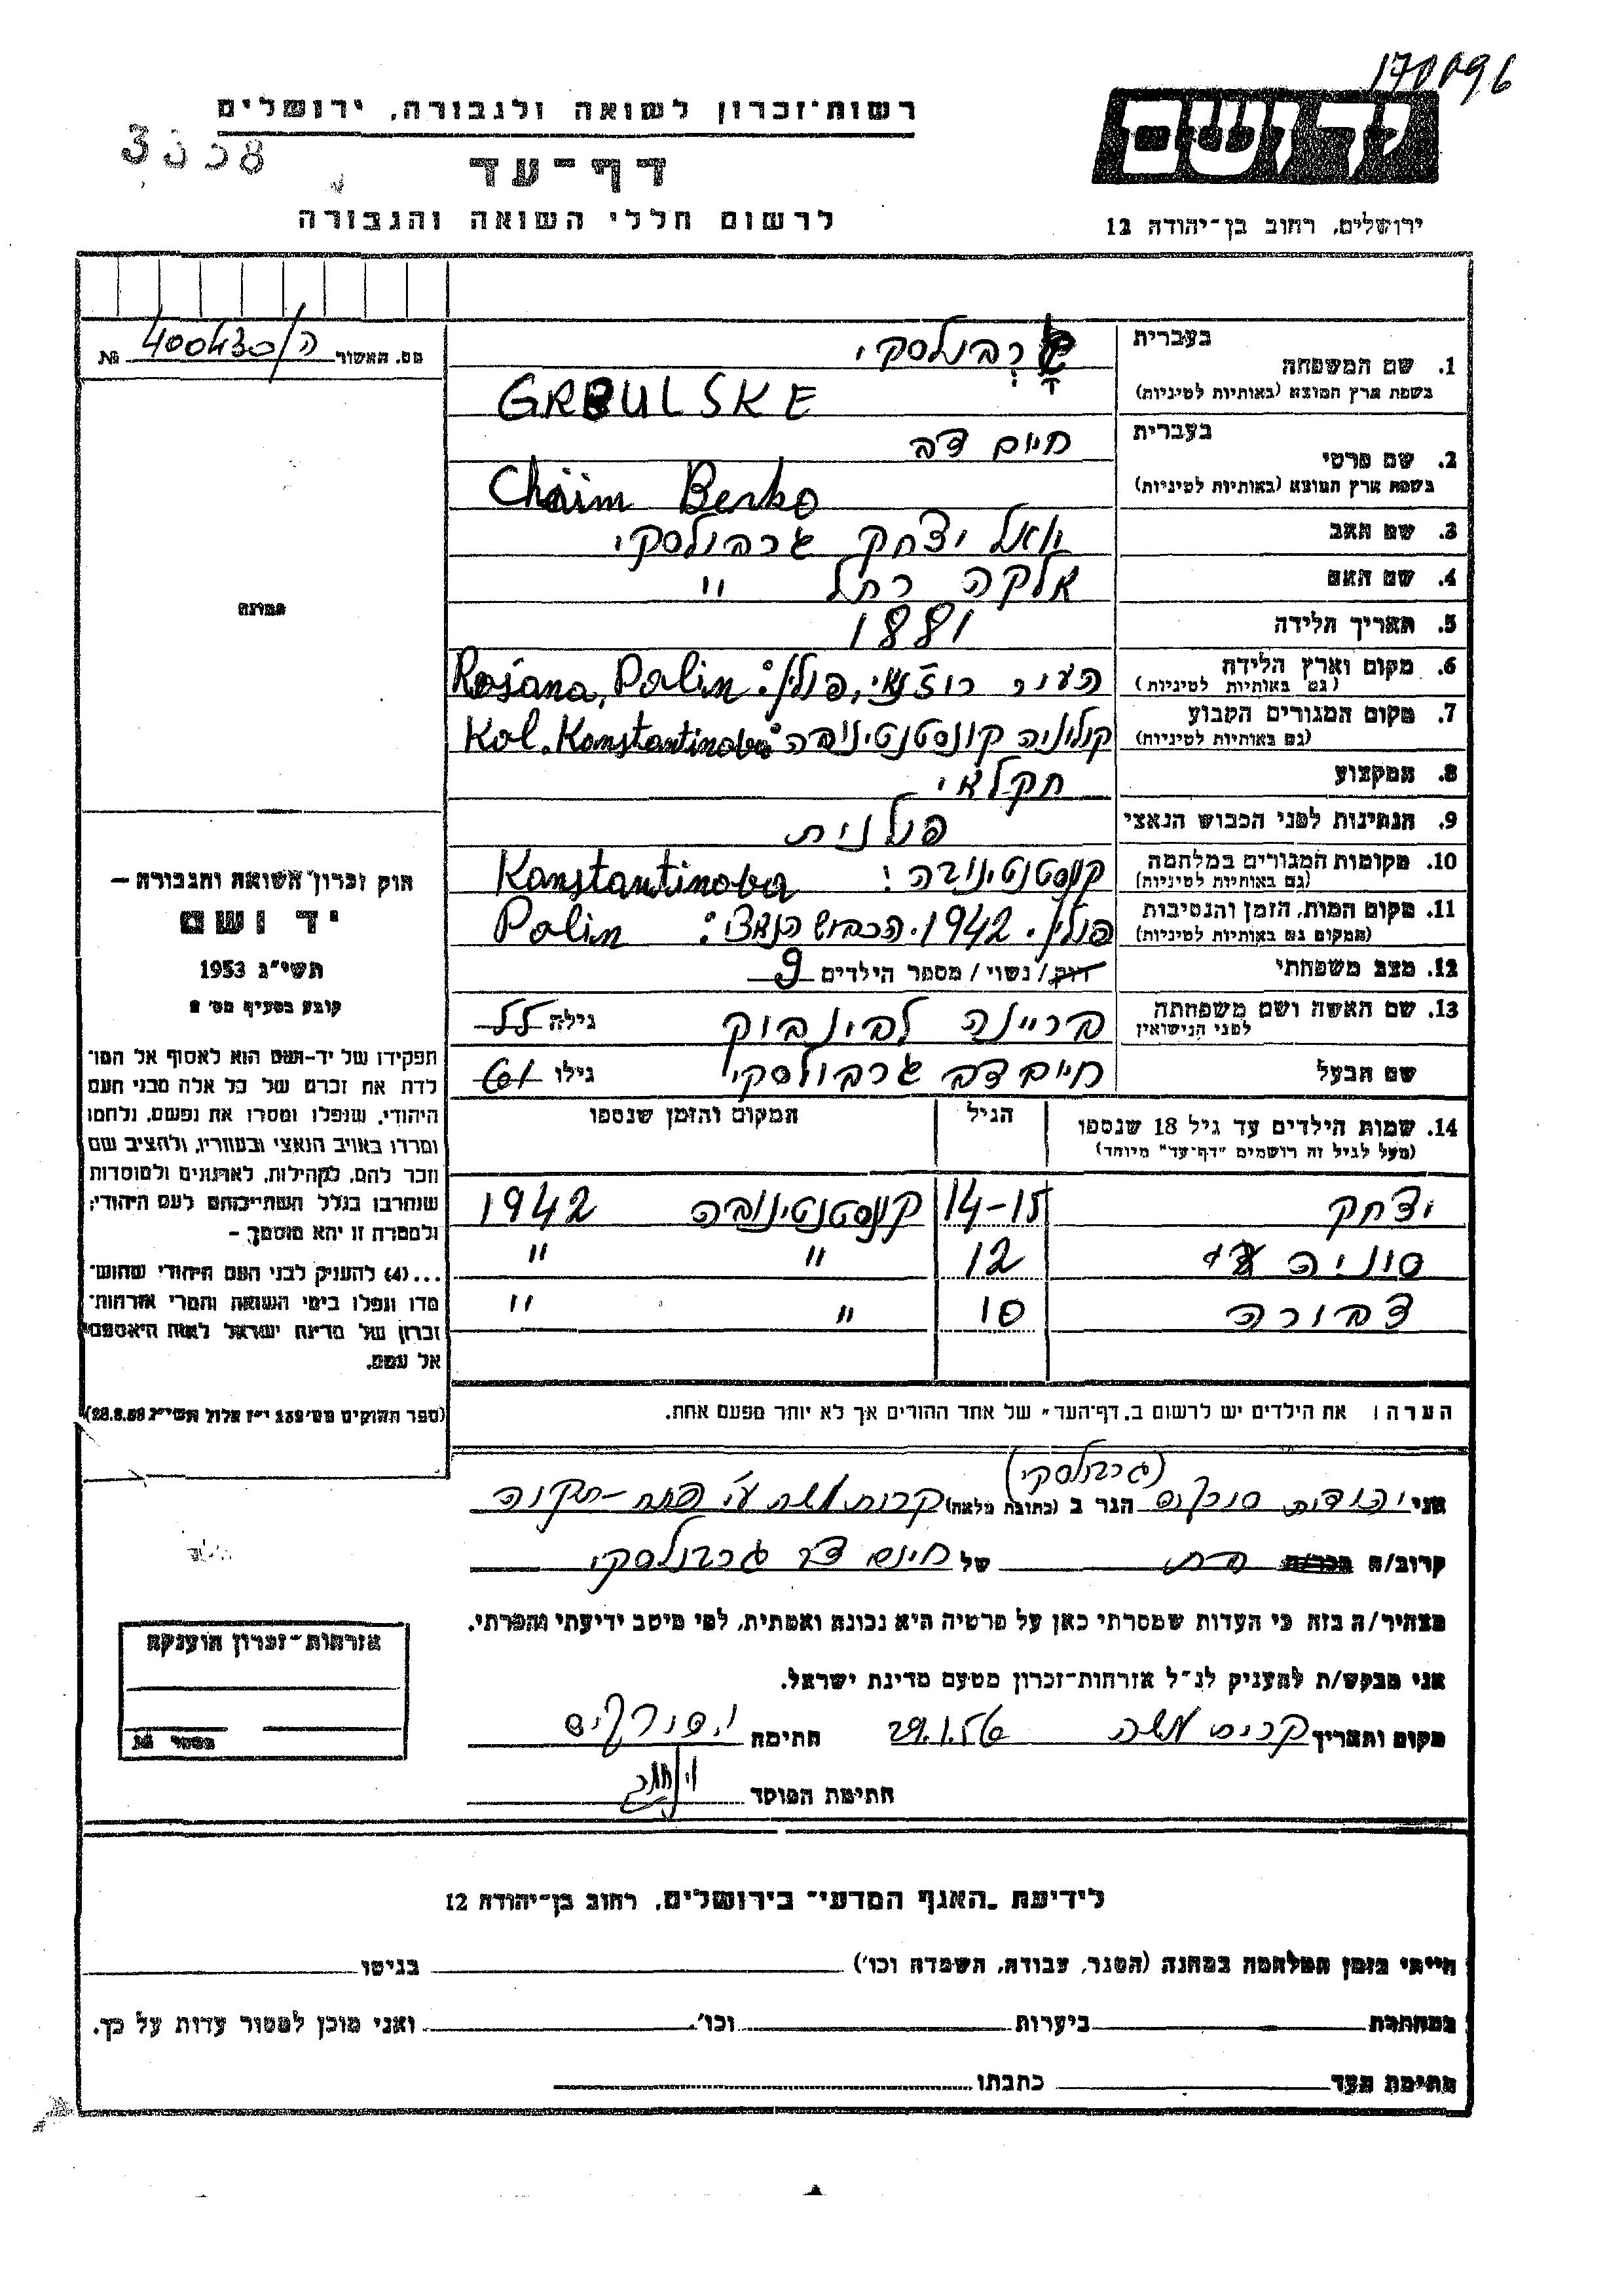 170096
רשות־זכרון לשואה ולגבורה, ירושלים
דף־עד
לרשום חללי השואה והגבורה
ידושם
ירושלים, רחוב בן־יהודה 12
מס. האשור ה/400430 №
בעברית
1. שם המשפחה גרבולסקי
בשפת ארץ המוצא (באותיות לטיניות) GRBULSKE
בעברית
2. שם פרטי חיים דב
בשפת ארץ המוצא (באותיות לטיניות) Chaim Berko
3. שם האב יואל יצחק גרבולסקי
4. שם האם אלקה רחל "
5. תאריך הלידה 1881
6. מקום וארץ הלידה העיר רוז'נאי, פולין: Rosana, Polin
(גם באותיות לטיניות)
7. מקום המגורים הקבוע קולוניה קונסטנטינובה: Kol. Konstantinova
(גם באותיות לטיניות)
8. המקצוע חקלאי
9. הנתינות לפני הכבוש הנאצי פולנית
10. מקומות המגורים במלחמה קונסטנטינובה: Konstantinova
(גם באותיות לטיניות)
11. מקום המות, הזמן והנסיבות פולין. 1942. הכבוש הנאצי: Polin
(המקום גם באותיות לטיניות)
12. מצב משפחתי רווק/ נשוי / מספר הילדים 9
13. שם האשה ושם משפחתה לפני הנישואין בריינה לבינבוק גילה 55
שם הבעל חיים דב גרבולסקי גילו 61
14. שמות הילדים עד גיל 18 שנספו הגיל המקום והזמן שנספו
(מעל לגיל זה רושמים "דף־עד" מיוחד)
יצחק 14-15 קונסטנטינובה 1942
סוניה 12 " "
דבורה 10 " "
הערה: את הילדים יש לרשום ב„דף־העד" של אחד ההורים אך לא יותר מפעם אחת.
תמונה
חוק זכרון השואה והגבורה —
יד ושם
תשי"ג 1953
קובע בסעיף מס' 2
תפקידו של יד-ושם הוא לאסוף אל המו־
לדת את זכרם של כל אלה מבני העם
היהודי, שנפלו ומסרו את נפשם, נלחמו
ומרדו באויב הנאצי ובעוזריו, ולהציב שם
וזכר להם, לקהילות, לארגונים ולמוסדות
שנחרבו בגלל השתייכותם לעם היהודי;
ולמטרה זו יהא מוסמך —
...(4) להעניק לבני העם היהודי שהוש־
מדו ונפלו בימי השואה והמרי אזרחות־
זכרון של מדינת ישראל לאות היאספם
אל עמם.
(ספר החוקים מס' 132 י"ז אלול תשי"ג 28.8.53)
(גרבולסקי)
אני יהודית הגר ב (כתובת מלאה) קרית משה ע"י פתח-תקוה
קרוב/ה מכר/ה בת של חיים דב גרבולסקי
מצהיר/ה בזה כי העדות שמסרתי כאן על פרטיה היא נכונה ואמתית, לפי מיטב ידיעתי והכרתי.
אני מבקש/ת להעניק לנ"ל אזרחות־זכרון מטעם מדינת ישראל.
מקום ותאריך קרית משה 29.1.56 חתימה
חתימת הפוקד
אזרחות־זכרון הוענקה
מספר №
לידיעת „האגף המדעי" בירושלים, רחוב בן־יהודה 12
הייתי בזמן המלחמה במחנה (הסגר, עבודה, השמדה וכו') בגיטו
במחתרת ביערות וכו'. ואני מוכן למסור עדות על כך.
חתימת העד כתבתו